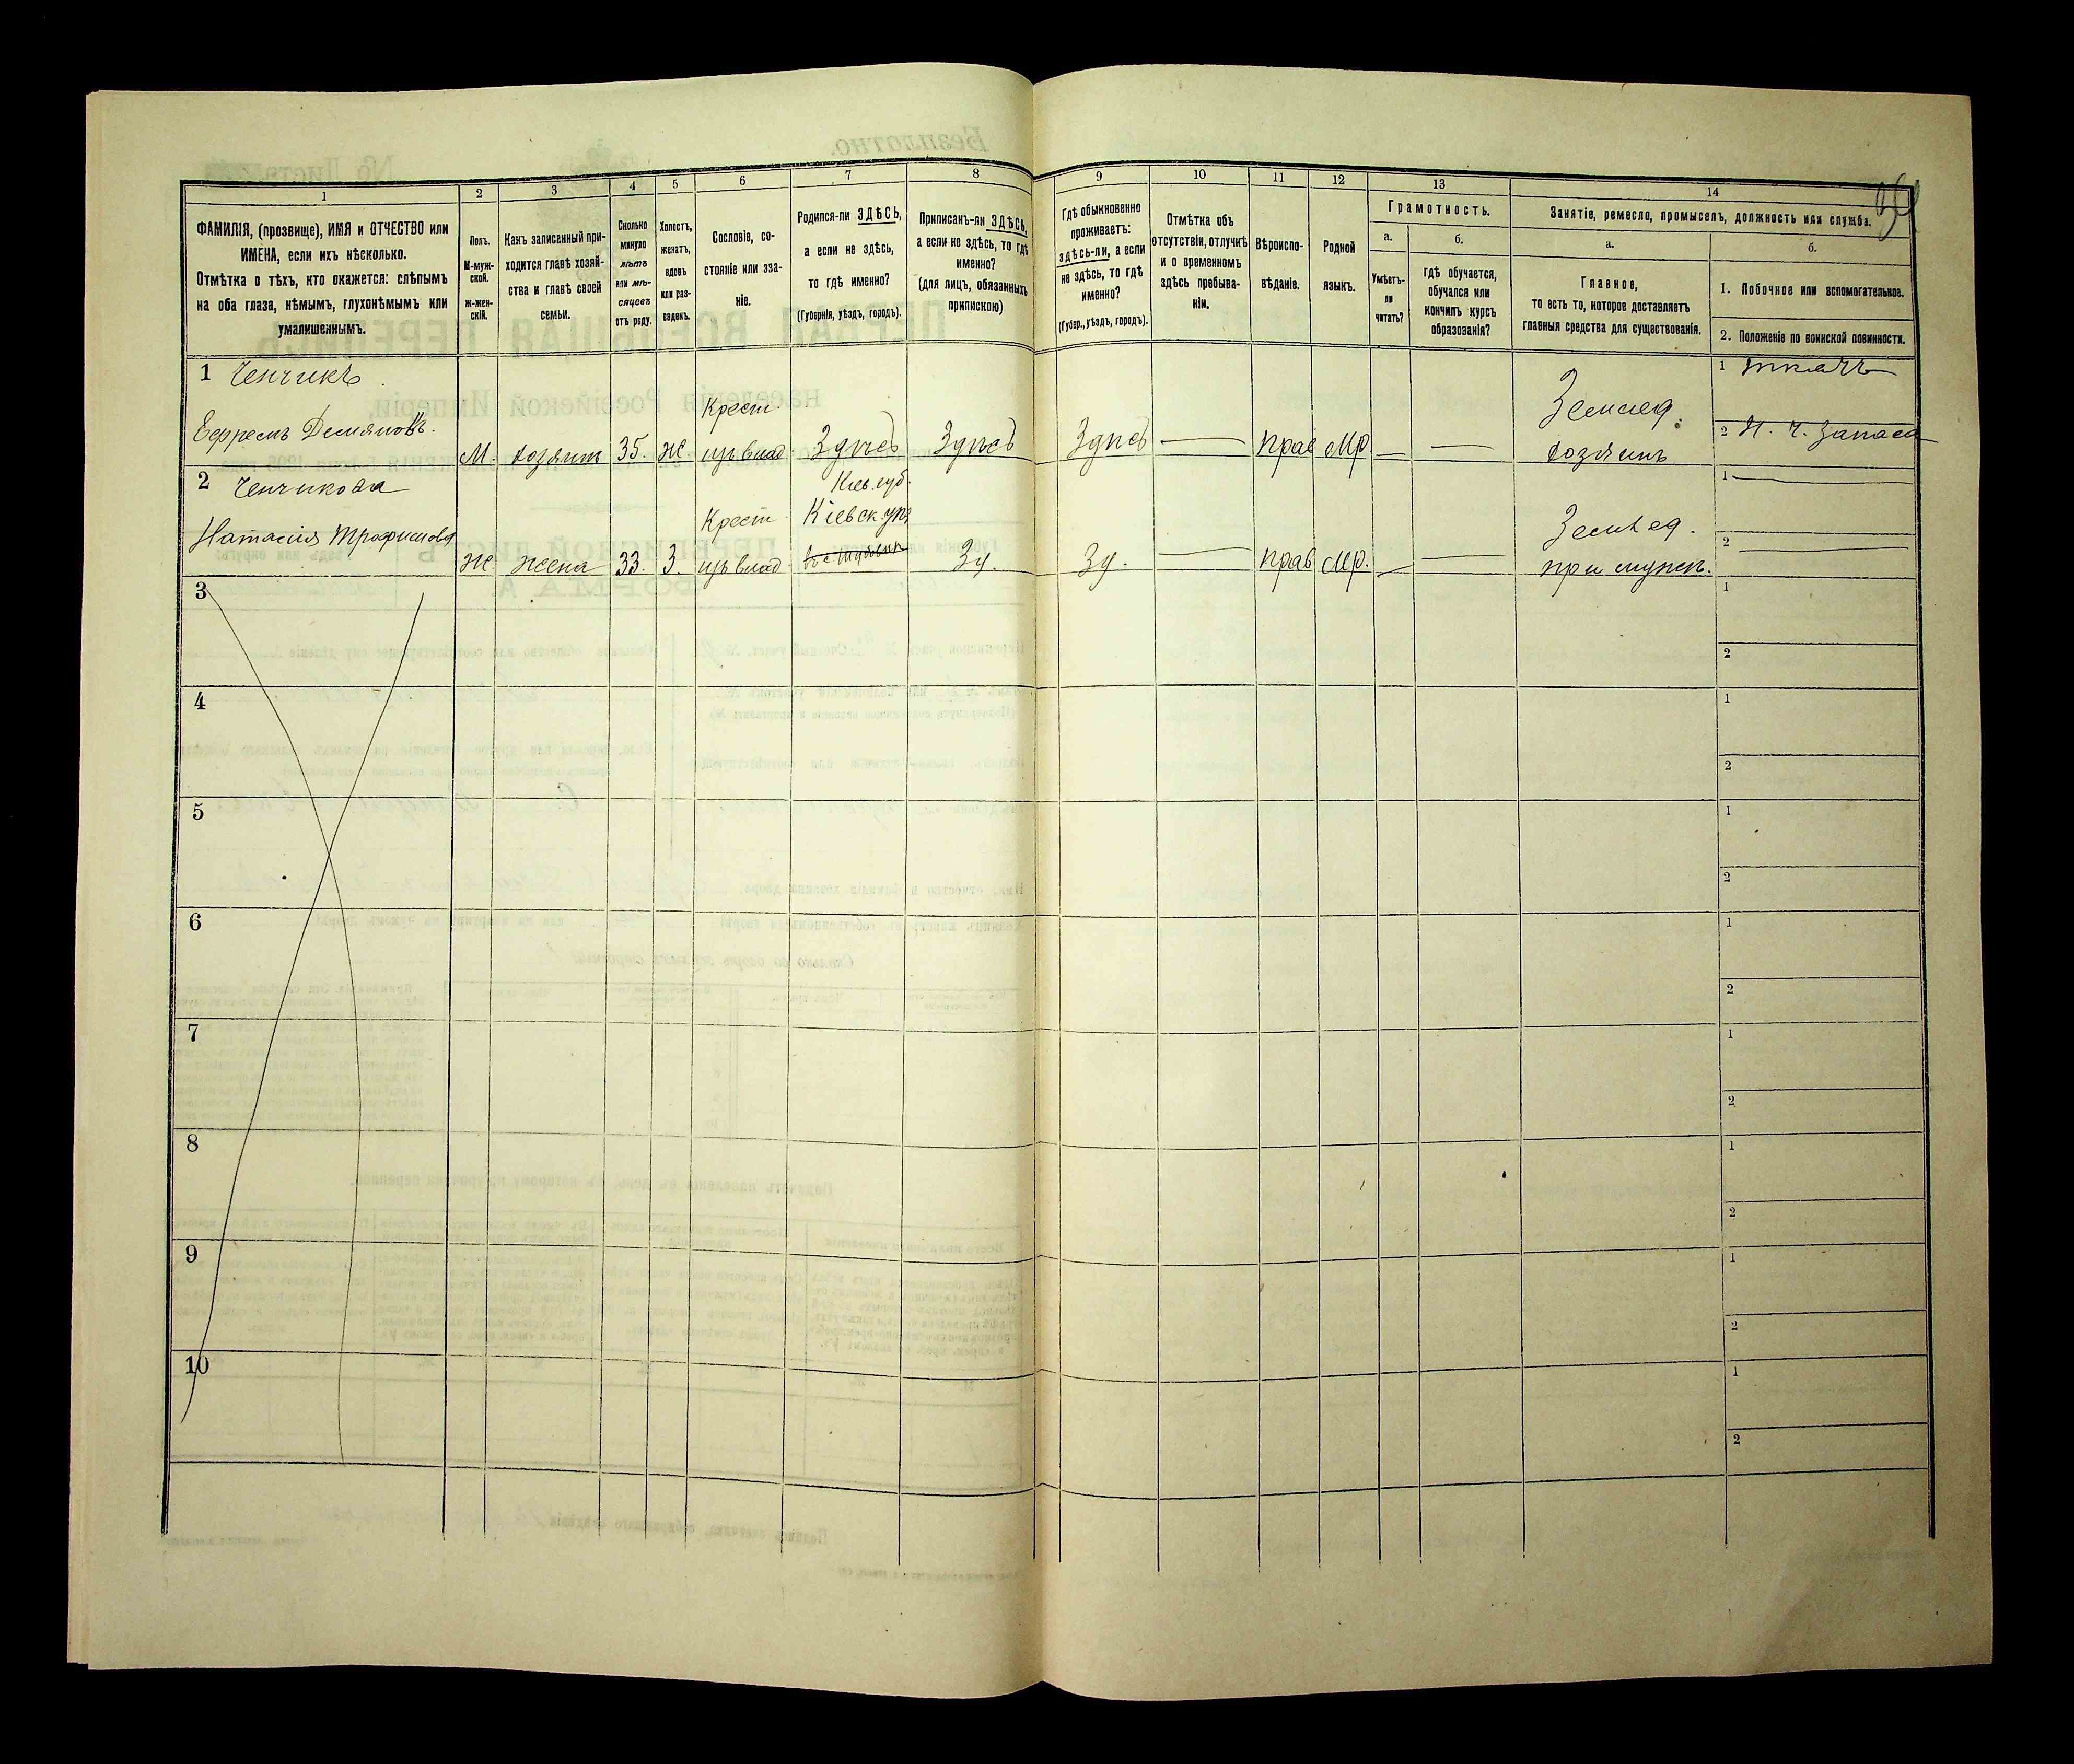 1
2
3
4
5
6
7
8
ФАМИЛІЯ, (прозвище), ИМЯ и ОТЧЕСТВО или
ИМЕНА, если ихъ нѣсколько.
Отмѣтка о тѣхъ, кто окажется: слѣпымъ
на оба глаза, нѣмымъ, глухонѣмымъ или
умалишеннымъ.
Полъ.
М-муж-
ской.
Ж-жен-
скій.
Какъ записанный при-
ходится главѣ хозяй-
ства и главѣ своей
семьи.
Сколько
минуло
лѣтъ
или мѣ-
сяцевъ
отъ роду.
Холостъ,
женатъ,
вдовъ
или раз-
веденъ.
Сословіе, со-
стояніе или зва-
ніе.
Родился-ли ЗДѢСЬ,
а если не здѣсь,
то гдѣ именно?
(Губернія, уѣздъ, городъ).
Приписанъ-ли ЗДѢСЬ,
а если не здѣсь, то гдѣ
именно?
(для лицъ, обязанныхъ
припискою)
9
10
11
12
13
14
Гдѣ обыкновенно
проживаетъ:
здѣсь-ли, а если
не здѣсь, то гдѣ
именно?
(Губер., уѣздъ, городъ).
Отмѣтка объ
отсутствіи, отлучкѣ
и о временномъ
здѣсь пребыва-
ніи.
Вѣроиспо-
вѣданіе.
Родной
языкъ.
Грамотность.
а.
б.
Умѣетъ-
ли
читать?
гдѣ обучается,
обучался или
кончилъ курсъ
образованія?
Занятіе, ремесло, промыселъ, должность или служба.
а.
б.
Главное,
то есть то, которое доставляетъ
главныя средства для существованія.
1. Побочное или вспомогательное.
2. Положеніе по воинской повинности.
1 Ченчикъ
Ефремъ Демяновъ.
М. хозяинъ 35. Ж Крест. Здѣсь Здѣсь
Здѣсь — Прав Мр. — —
Землед.
хозяинъ
1 ткачъ
2 Н. Ч. Запаса
2 Ченчикова
Натасія Трофимова
Ж Жена 33. З Крест.
Кіев. губ.
Кіевск. у.
Зд. Зд. — Прав Мр. — —
Землед.
при мужѣ.
1 —
2 —
3
1
2
4
1
2
5
1
2
6
1
2
7
1
2
8
1
2
9
1
2
10
1
2